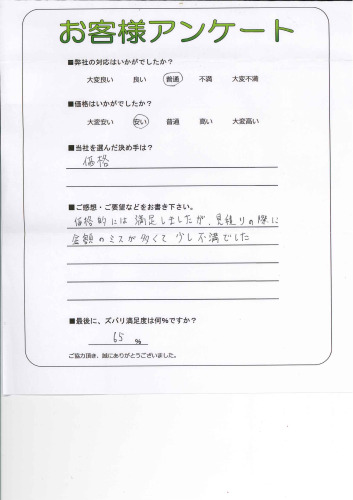 お客様アンケート
■弊社の対応はいかがでしたか？
大変良い 良い 普通 不満 大変不満
■価格はいかがでしたか？
大変安い 安い 普通 高い 大変高い
■当社を選んだ決め手は？
価格
■ご感想・ご要望などをお書き下さい。
価格的には満足しましたが、見積りの際に
金額のミスが多くて少し不満でした
■最後に、ズバリ満足度は何%ですか？
65 %
ご協力頂き、誠にありがとうございました。